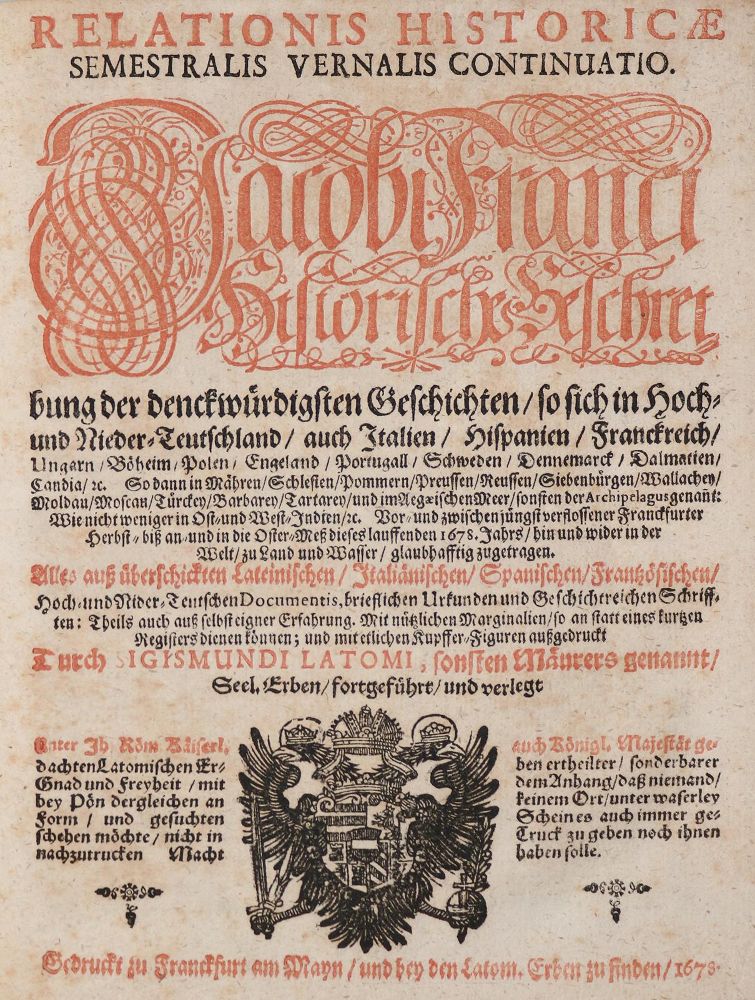 RELATIONIS HISTORICÆ
SEMESTRALIS VERNALIS CONTINUATIO.
Jacobi Franci
Historische Beschrei
bung der denckwürdigsten Geschichten / so sich in Hoch-
und Nieder-Teutschland / auch Italien / Hispanien / Franckreich /
Ungarn / Böheim / Polen / Engeland / Portugall / Schweden / Dennemarck / Dalmatien /
Candia / ꝛc. So dann in Mähren / Schlesien / Pommern / Preussen / Reussen / Siebenbürgen / Wallachey /
Moldau / Moscau / Türckey / Barbarey / Tartarey / und im Aegæischen Meer / sonsten der Archipelagus genañt:
Wie nicht weniger in Ost- und West-Indien / ꝛc. Vor- und zwischen jüngst verflossener Franckfurter
Herbst- biß an- und in die Oster-Meß dieses lauffenden 1678. Jahrs / hin und wider in der
Welt / zu Land und Wasser / glaubhafftig zugetragen.
Alles auß überschickten Lateinischen / Italiänischen / Spanischen / Frantzösischen /
Hoch- und Nider-Teutschen Documentis, brieflichen Urkunden und Geschichtreichen Schriff-
ten: Theils auch auß selbst eigner Erfahrung. Mit nützlichen Marginalien / so an statt eines kurtzen
Registers dienen können; und mit etlichen Kupffer-Figuren außgedruckt
Durch SIGISMUNDI LATOMI, sonsten Mäurers genannt /
Seel. Erben / fortgeführt / und verlegt
Unter Ih. Röm. Käiserl. auch Königl. Majestät ge-
dachten Latomischen Er- ben ertheilter / sonderbarer
Gnad und Freyheit / mit dem Anhang / daß niemand /
bey Pön dergleichen an keinem Ort / unter waserley
Form / und gesuchten Schein es auch immer ge-
schehen möchte / nicht in Truck zu geben noch ihnen
nachzutrucken Macht haben solle.
Gedruckt zu Franckfurt am Mayn / und bey den Latom. Erben zu finden / 1678.